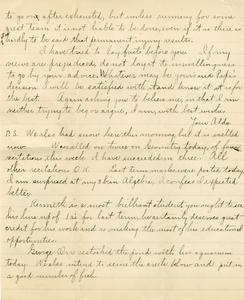 to go on after exhausted, but unless running for some
great team it is not liable to be done, even if it is there is
hardly to be said that permanent injury results.
I have tried to lay facts before you. If my
views are prejudiced, do not lay it to unwillingness
to go by your advice. Whatever may be yours and Papa's
decision I will be satisfied with and know it is for
the best. Again asking you to believe me, so that I am
neither trying to beg or argue, I am with best wishes
Your Aldo
P.S. We also had snow here this morning but it is melted
now. Was called on twice on Geometry today, of four
recitations this week I have succeeded in three. All
other recitations O.K. Last term marks were posted today
I am surprised at my above Algebra, I confess I expected
better.
Kenneth is a most brilliant student you ought to see
his line up of 1s for last term. He certainly deserves great
credit for his work and is making the most of his educational
opportunities.
George Orr restocked the pond with his aquarium
today. We also intend to seine the creek below and put in
a good number of fish.